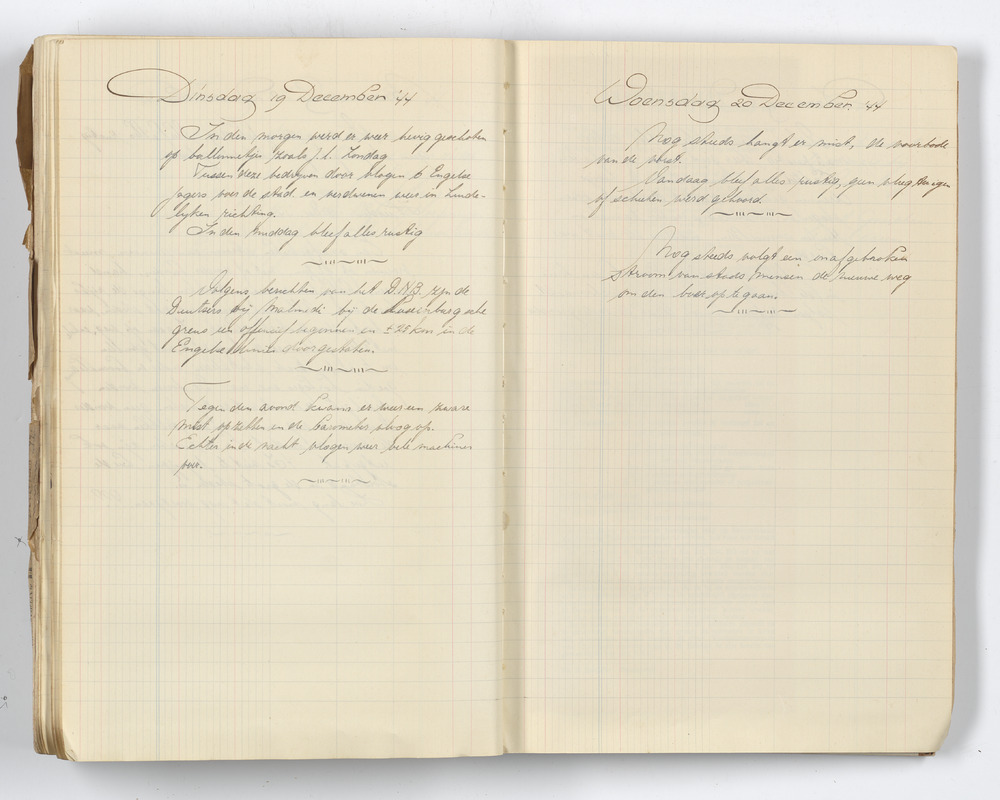 Dinsdag 19 December '44
In den morgen werd er weer hevig geschoten
op ballonnetjes zoals j.l. Zondag
Tussen deze bedrijven door vlogen 6 Engelse
jagers over de stad en verdwenen weer in Zuide-
lijken richting.
In den middag bleef alles rustig
Volgens berichten van het D.N.B. zijn de
Duitsers bij Malmedi bij de Luxemburgsche
grens een offensief begonnen en ± 25 km in de
Engelse linies doorgestoten.
Tegen den avond kwam er weer een zware
mist opzetten en de barometer vloog op.
Echter in de nacht vlogen weer vele machines
over.
Woensdag 20 December '44
Nog steeds hangt er mist, de voorbode
van de vorst.
Vandaag bleef alles rustig, geen vliegtuigen
of schieten werd gehoord.
Nog steeds volgt een onafgebroken
stroom van stads mensen de nieuwe weg
om den boer op te gaan.